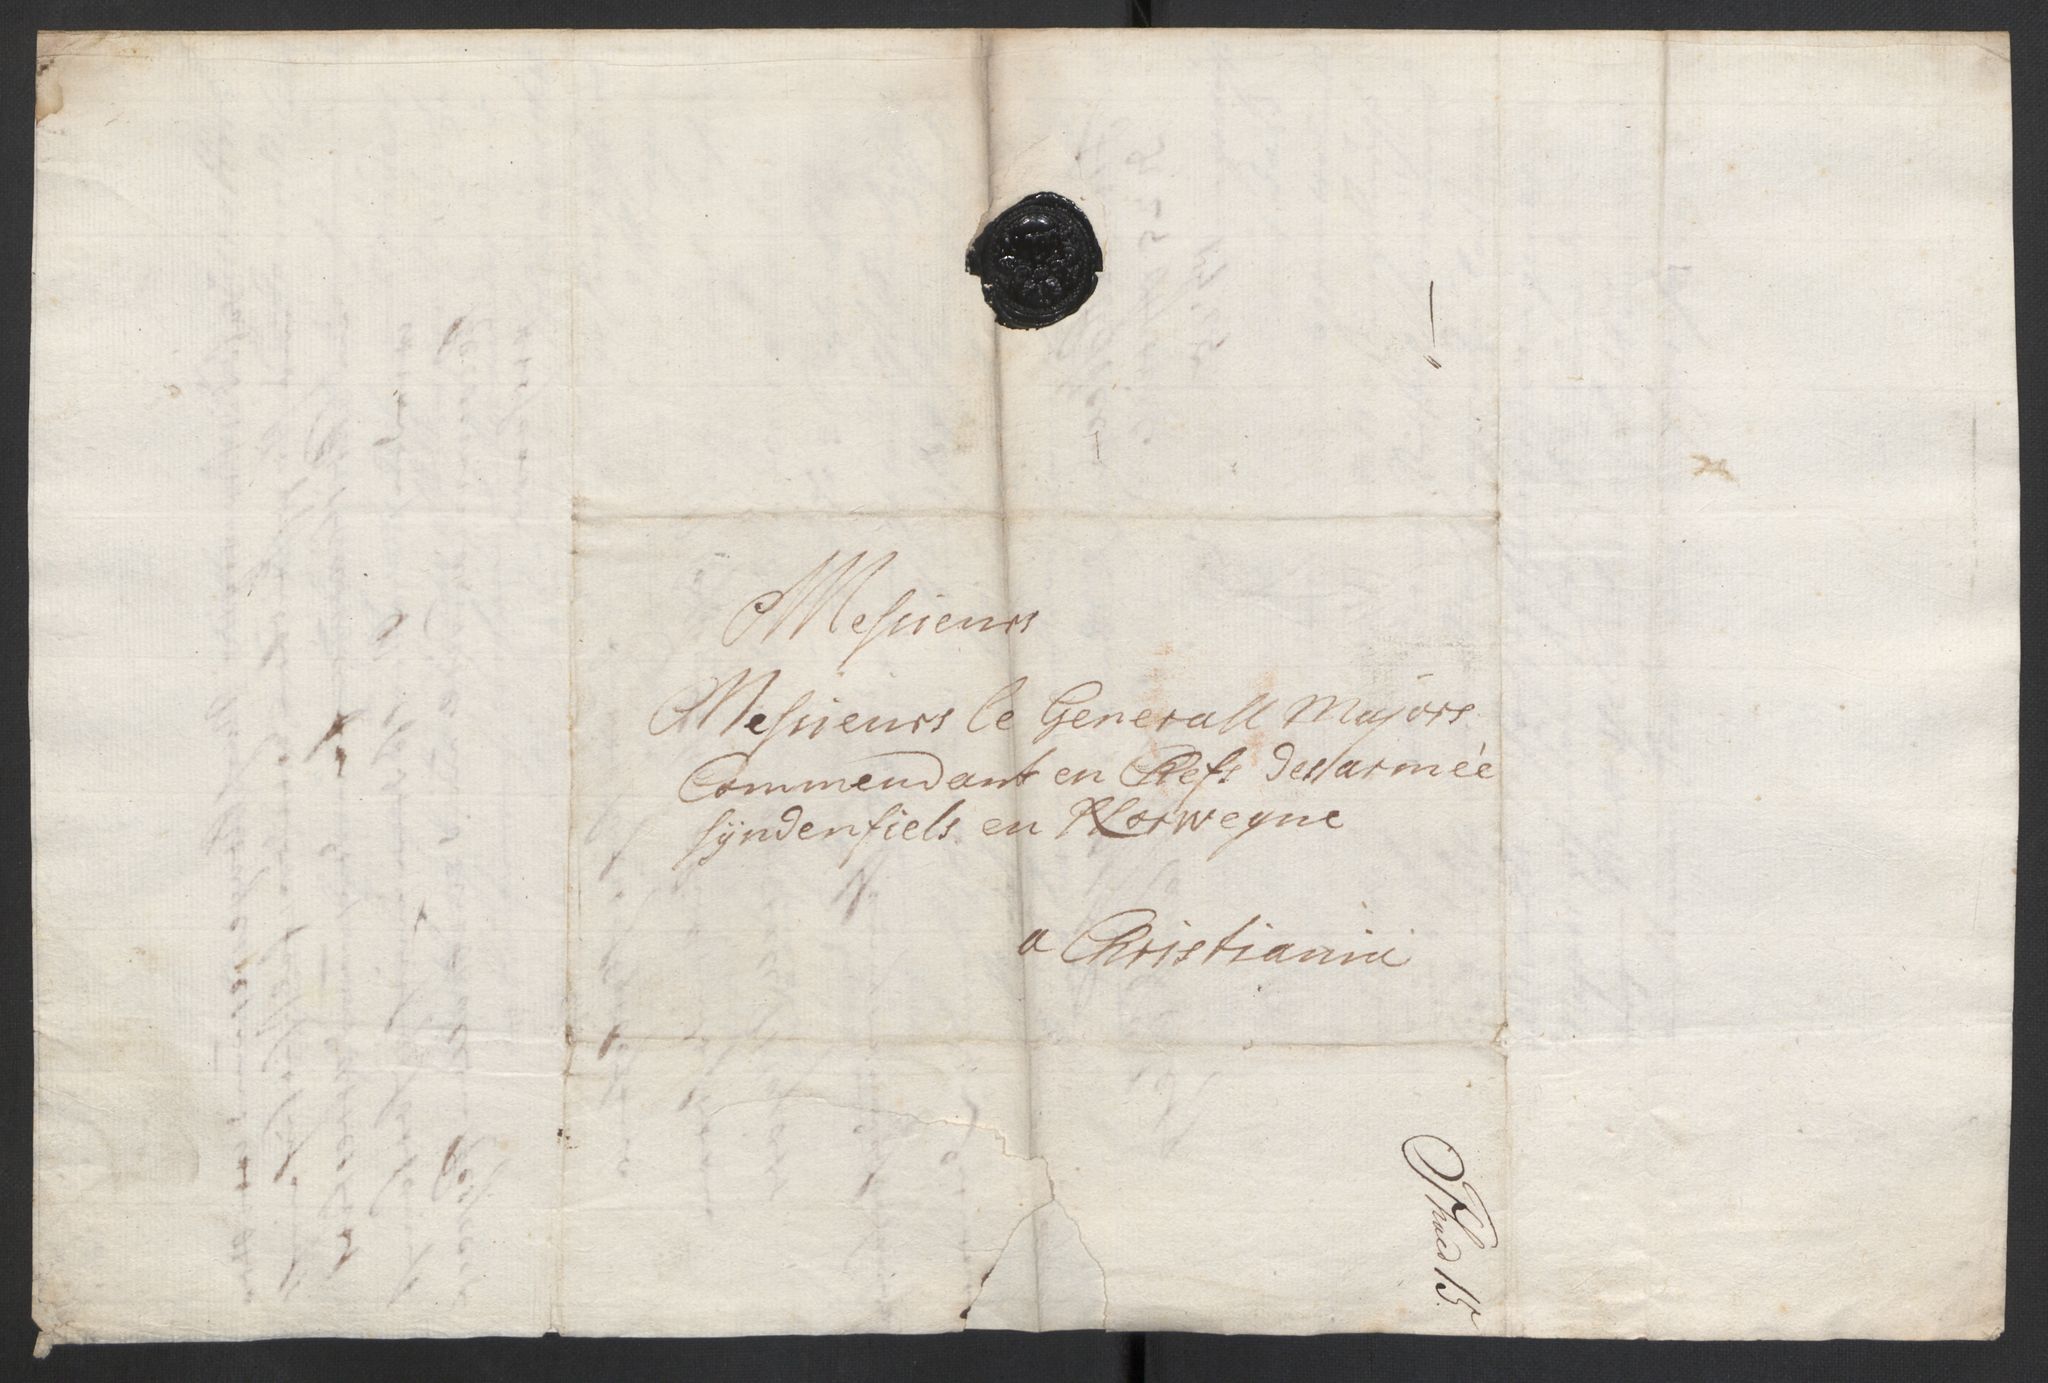 Messieurs
Messieurs le Generall Majors
Commendant en Chefs des armée
syndenfiels en Norwegne
a Christiania